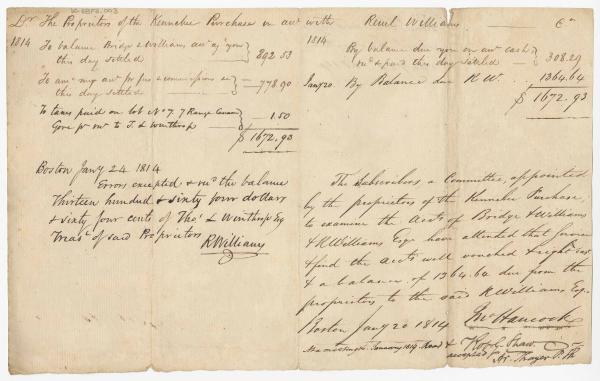 K-6BF6.003
Dr The Proprietors of the Kennebec Purchase in acct with Reuel Williams Cr
1814
To balance Bridge & Williams acct agt you
this day settled 892.53
To amt my acct for fees & commissions &c
this day settled 778.90
To taxes paid on lot No 7. 7 Range
Gore pr rect to T. L Winthrop 1.50
$ 1672.93
Boston Jany 24 1814
Errors excepted & recd the balance
Thirteen hundred & sixty four dollars
& sixty four cents of Thos L Winthrop Esq
Treasr of said Proprietors
RWilliams
1814
By balance due you on acct cash
recd & paid this day settled 308.29
Jany 20. By Balance due R.W. 1364.64
$ 1672.93
The Subscribers a Committee, appointed
by the proprietors of the Kennebec Purchase,
to examine the Accts of Bridge & Williams
& RWilliams Esqr have attended that service
& find the accts well vouched & right cast
& a balance of 1364.64 due from the
proprietors to the said RWilliams Esqr
Boston Jany 20 1814.
Jno Hancock
At a meeting January 1814. Read & accepted
R. G. Shaw
Atr. Thayer P. Ck